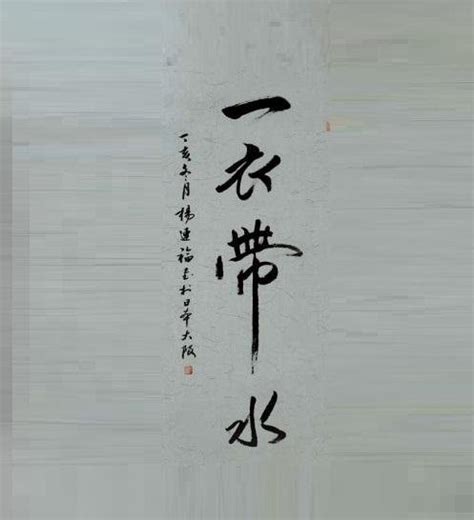 一衣帶水
丁亥冬月楊連福書於日本大阪